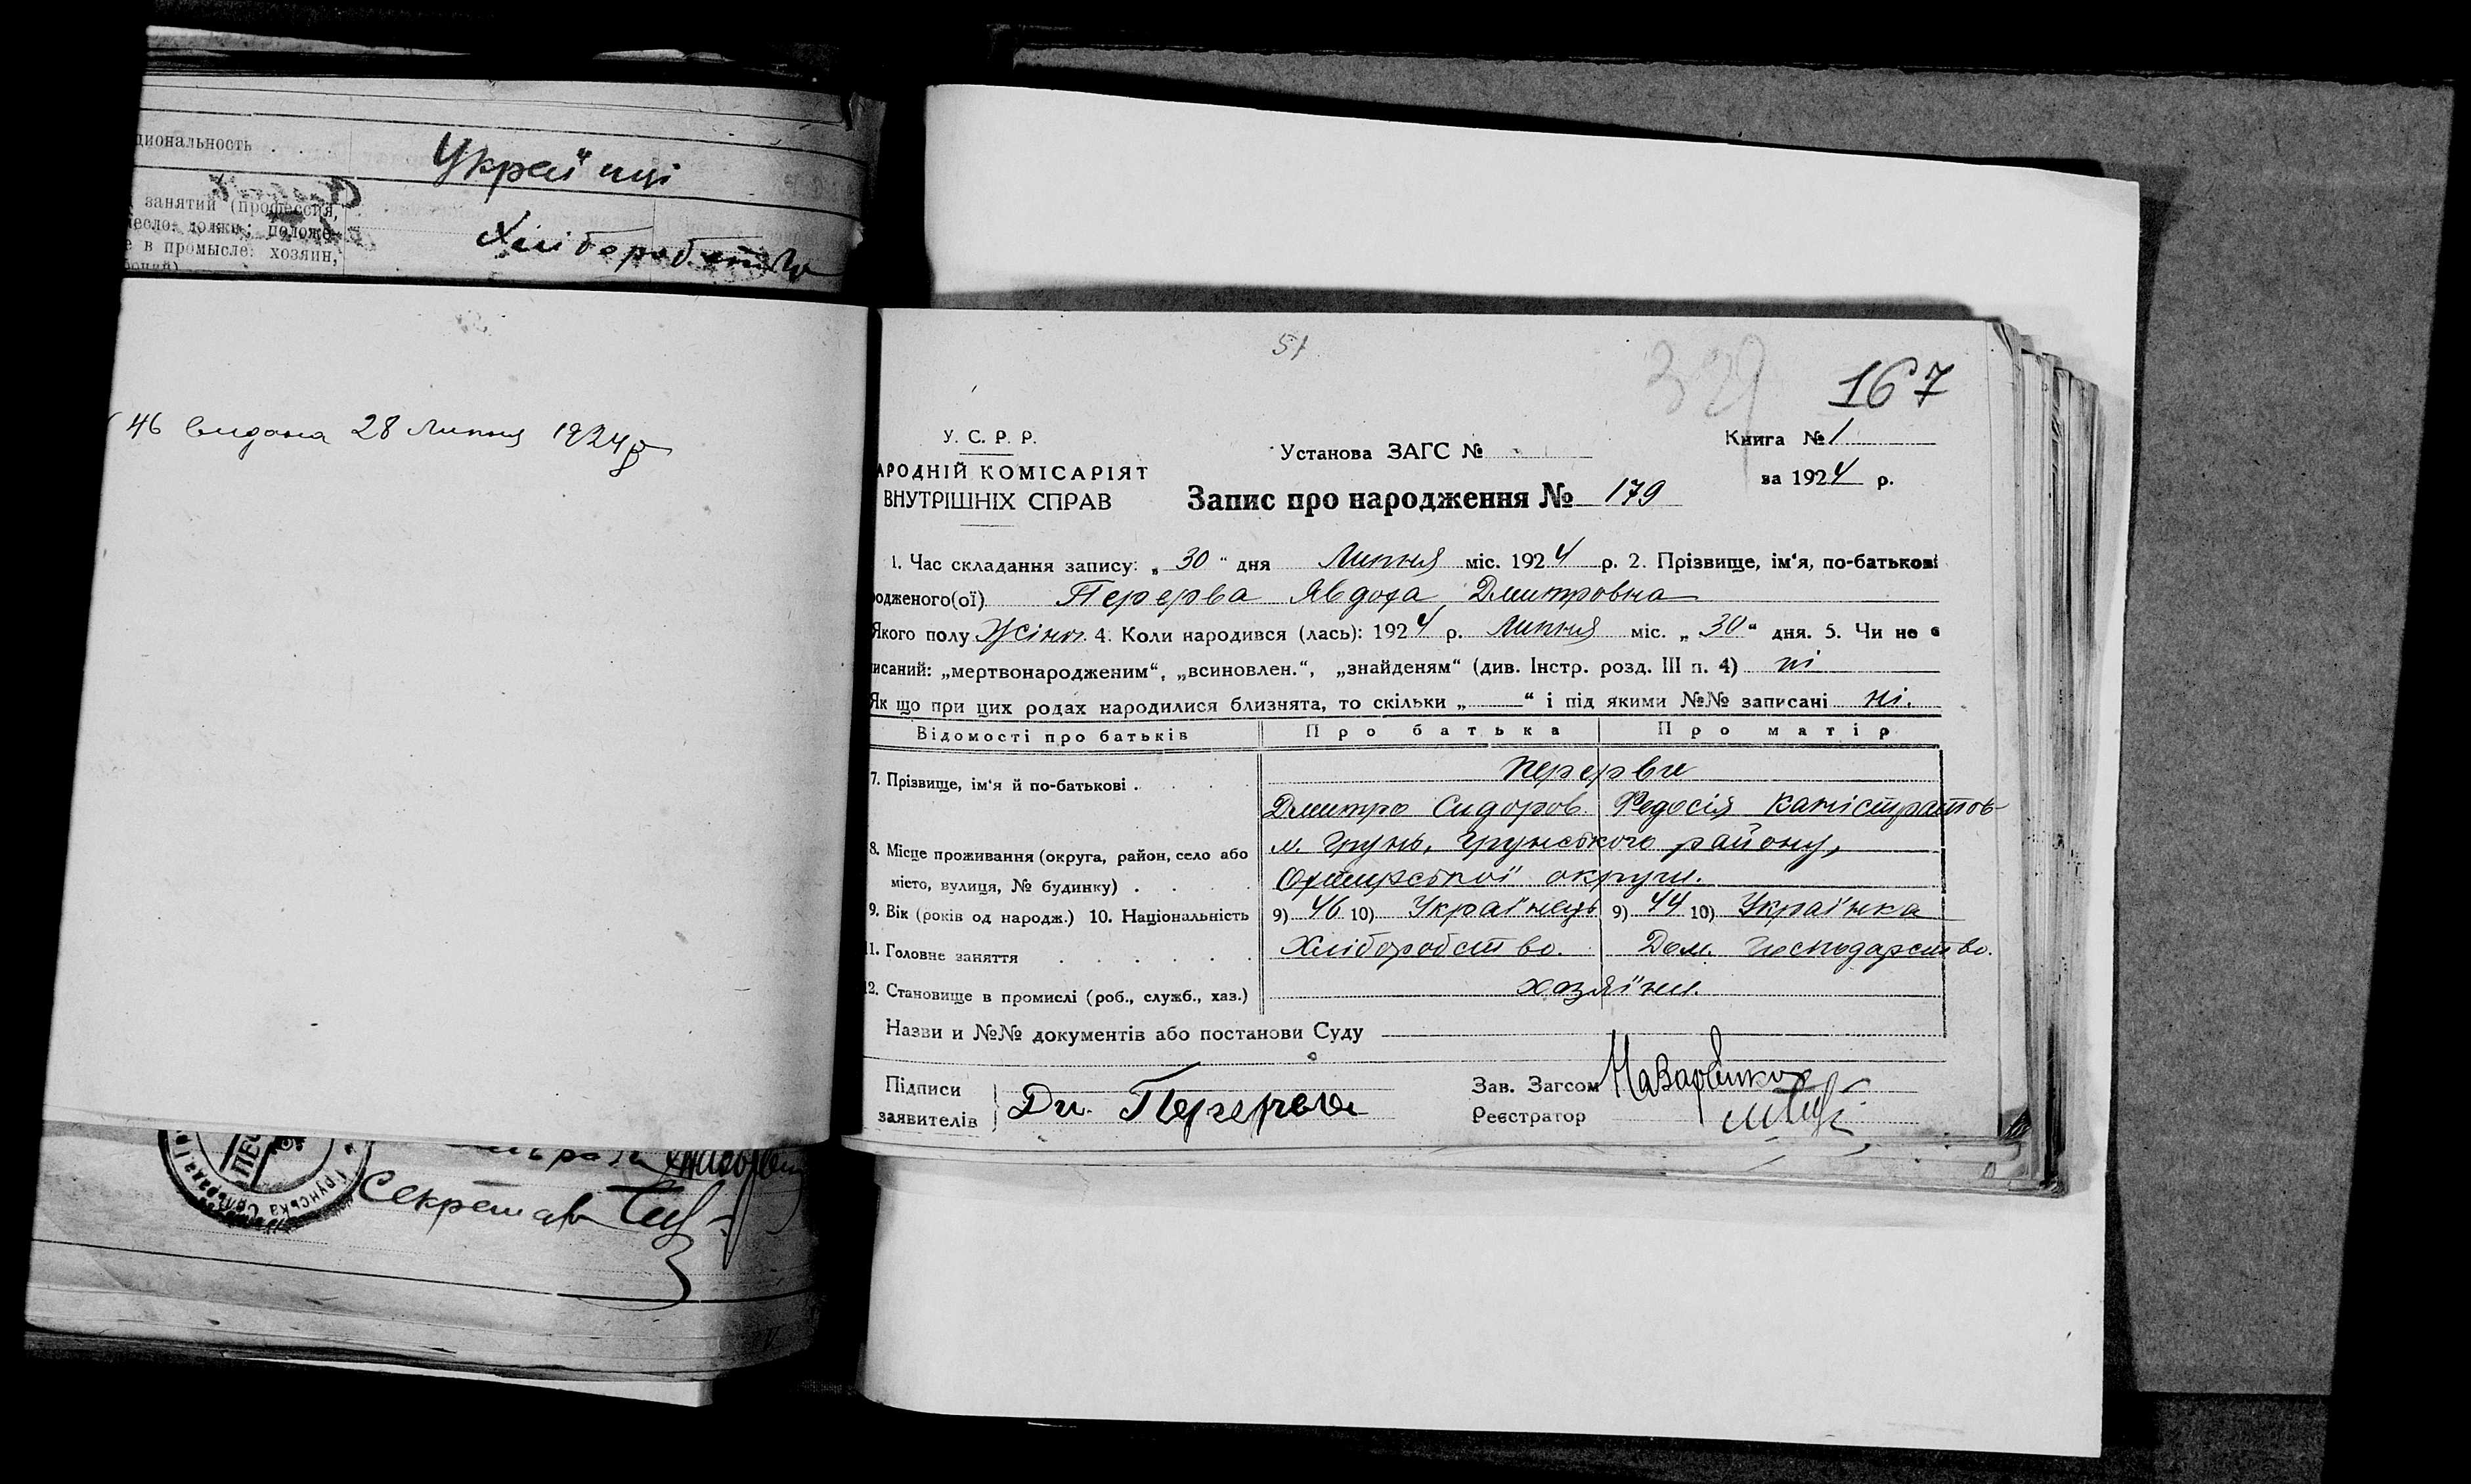 ціональность . . .
Украінці
занятий (профессия,
есло: должн.; положе-
е в промысле: хозяин,
Хліборобство
46 видана 28 Липня 1924 р
Секретар
51
329
167
У. С. Р. Р.
АРОДНІЙ КОМІСАРІЯТ
ВНУТРІШНІХ СПРАВ
Установа ЗАГС №
Книга № 1
за 1924 р.
Запис про народження № 179
1. Час складання запису: „ 30 “ дня Липня міс. 1924 р. 2. Прізвище, ім'я, по-батькові
одженого(ої) Перерва Явдоха Дмитровна
Якого полу Жіноч. 4. Коли народився (лась): 1924 р. Липня міс. „ 30 “ дня. 5. Чи не є
исаний: „мертвонародженим“, „всиновлен.“, „знайденям“ (див. Інстр. розд. III п. 4) ні
Як що при цих родах народилися близнята, то скільки „ — “ і під якими №№ записані ні.
Відомості про батьків Про батька Про матір
7. Прізвище, ім'я й по-батькові . . . .
Перерви
Дмитро Сидоров Федосія Калістратов-
8. Місце проживання (округа, район, село або
місто, вулиця, № будинку) . . . .
м. Грунь, Грунського району,
Охтирської округи.
9. Вік (років од народж.) 10. Національність 9) 46 10) Українець 9) 44 10) Українка
11. Головне заняття . . . . . . Хліборобство. Дом. Господарство.
12. Становище в промислі (роб., служб., хаз.) хазяїни.
Назви и №№ документів або постанови Суду
Підписи
заявителів
Дм. Перерва
Зав. Загсом
Реєстратор